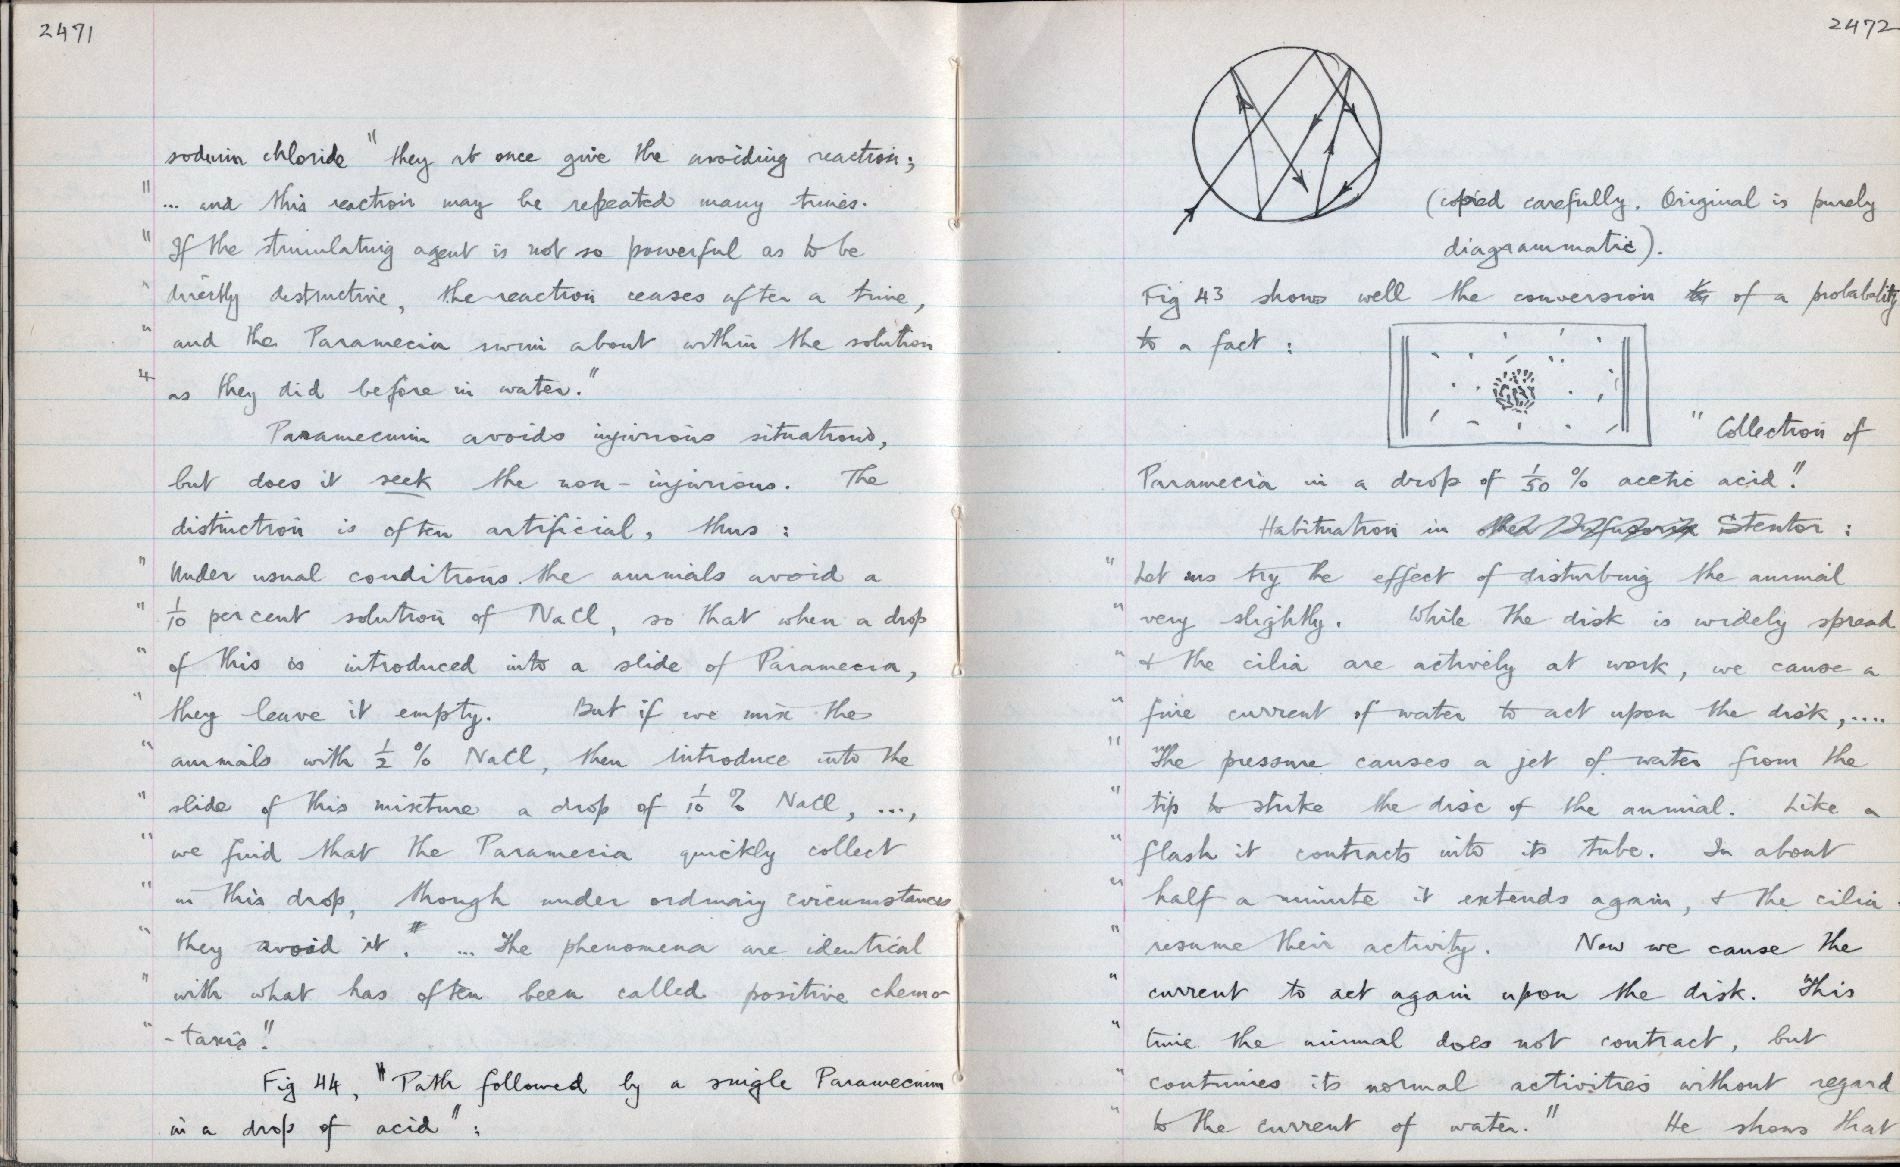 2471
sodium chloride "they at once give the avoiding reaction;
" ... and this reaction may be repeated many times.
" If the stimulating agent is not so powerful as to be
" directly destructive, the reaction ceases after a time,
" and the Paramecia swim about within the solution
" as they did before in water."
Paramecium avoids injurious situations,
but does it seek the non-injurious. The
distinction is often artificial, thus:
" Under usual conditions the animals avoid a
" 1/10 per cent solution of NaCl, so that when a drop
" of this is introduced into a slide of Paramecia,
" they leave it empty. But if we mix the
" animals with 1/2 % NaCl, then introduce into the
" slide of this mixture a drop of 1/10 % NaCl, ...,
" we find that the Paramecia quickly collect
" in this drop, though under ordinary circumstances
" they avoid it." ... The phenomena are identical
" with what has often been called positive chemo
" -taxis."
Fig 44, "Path followed by a single Paramecium
in a drop of acid":
2472
(copied carefully. Original is purely
diagrammatic).
Fig 43 shows well the conversion of a probability
to a fact:
"Collection of
Paramecia in a drop of 1/50 % acetic acid."
Habituation in the Infusoria Stentor:
" Let us try the effect of disturbing the animal
" very slightly. While the disk is widely spread
" & the cilia are actively at work, we cause a
" fine current of water to act upon the disk,....
" The pressure causes a jet of water from the
" tip to strike the disc of the animal. Like a
" flash it contracts into its tube. In about
" half a minute it extends again, & the cilia
" resume their activity. Now we cause the
" current to act again upon the disk. This
" time the animal does not contract, but
" continues its normal activities without regard
" to the current of water." He shows that